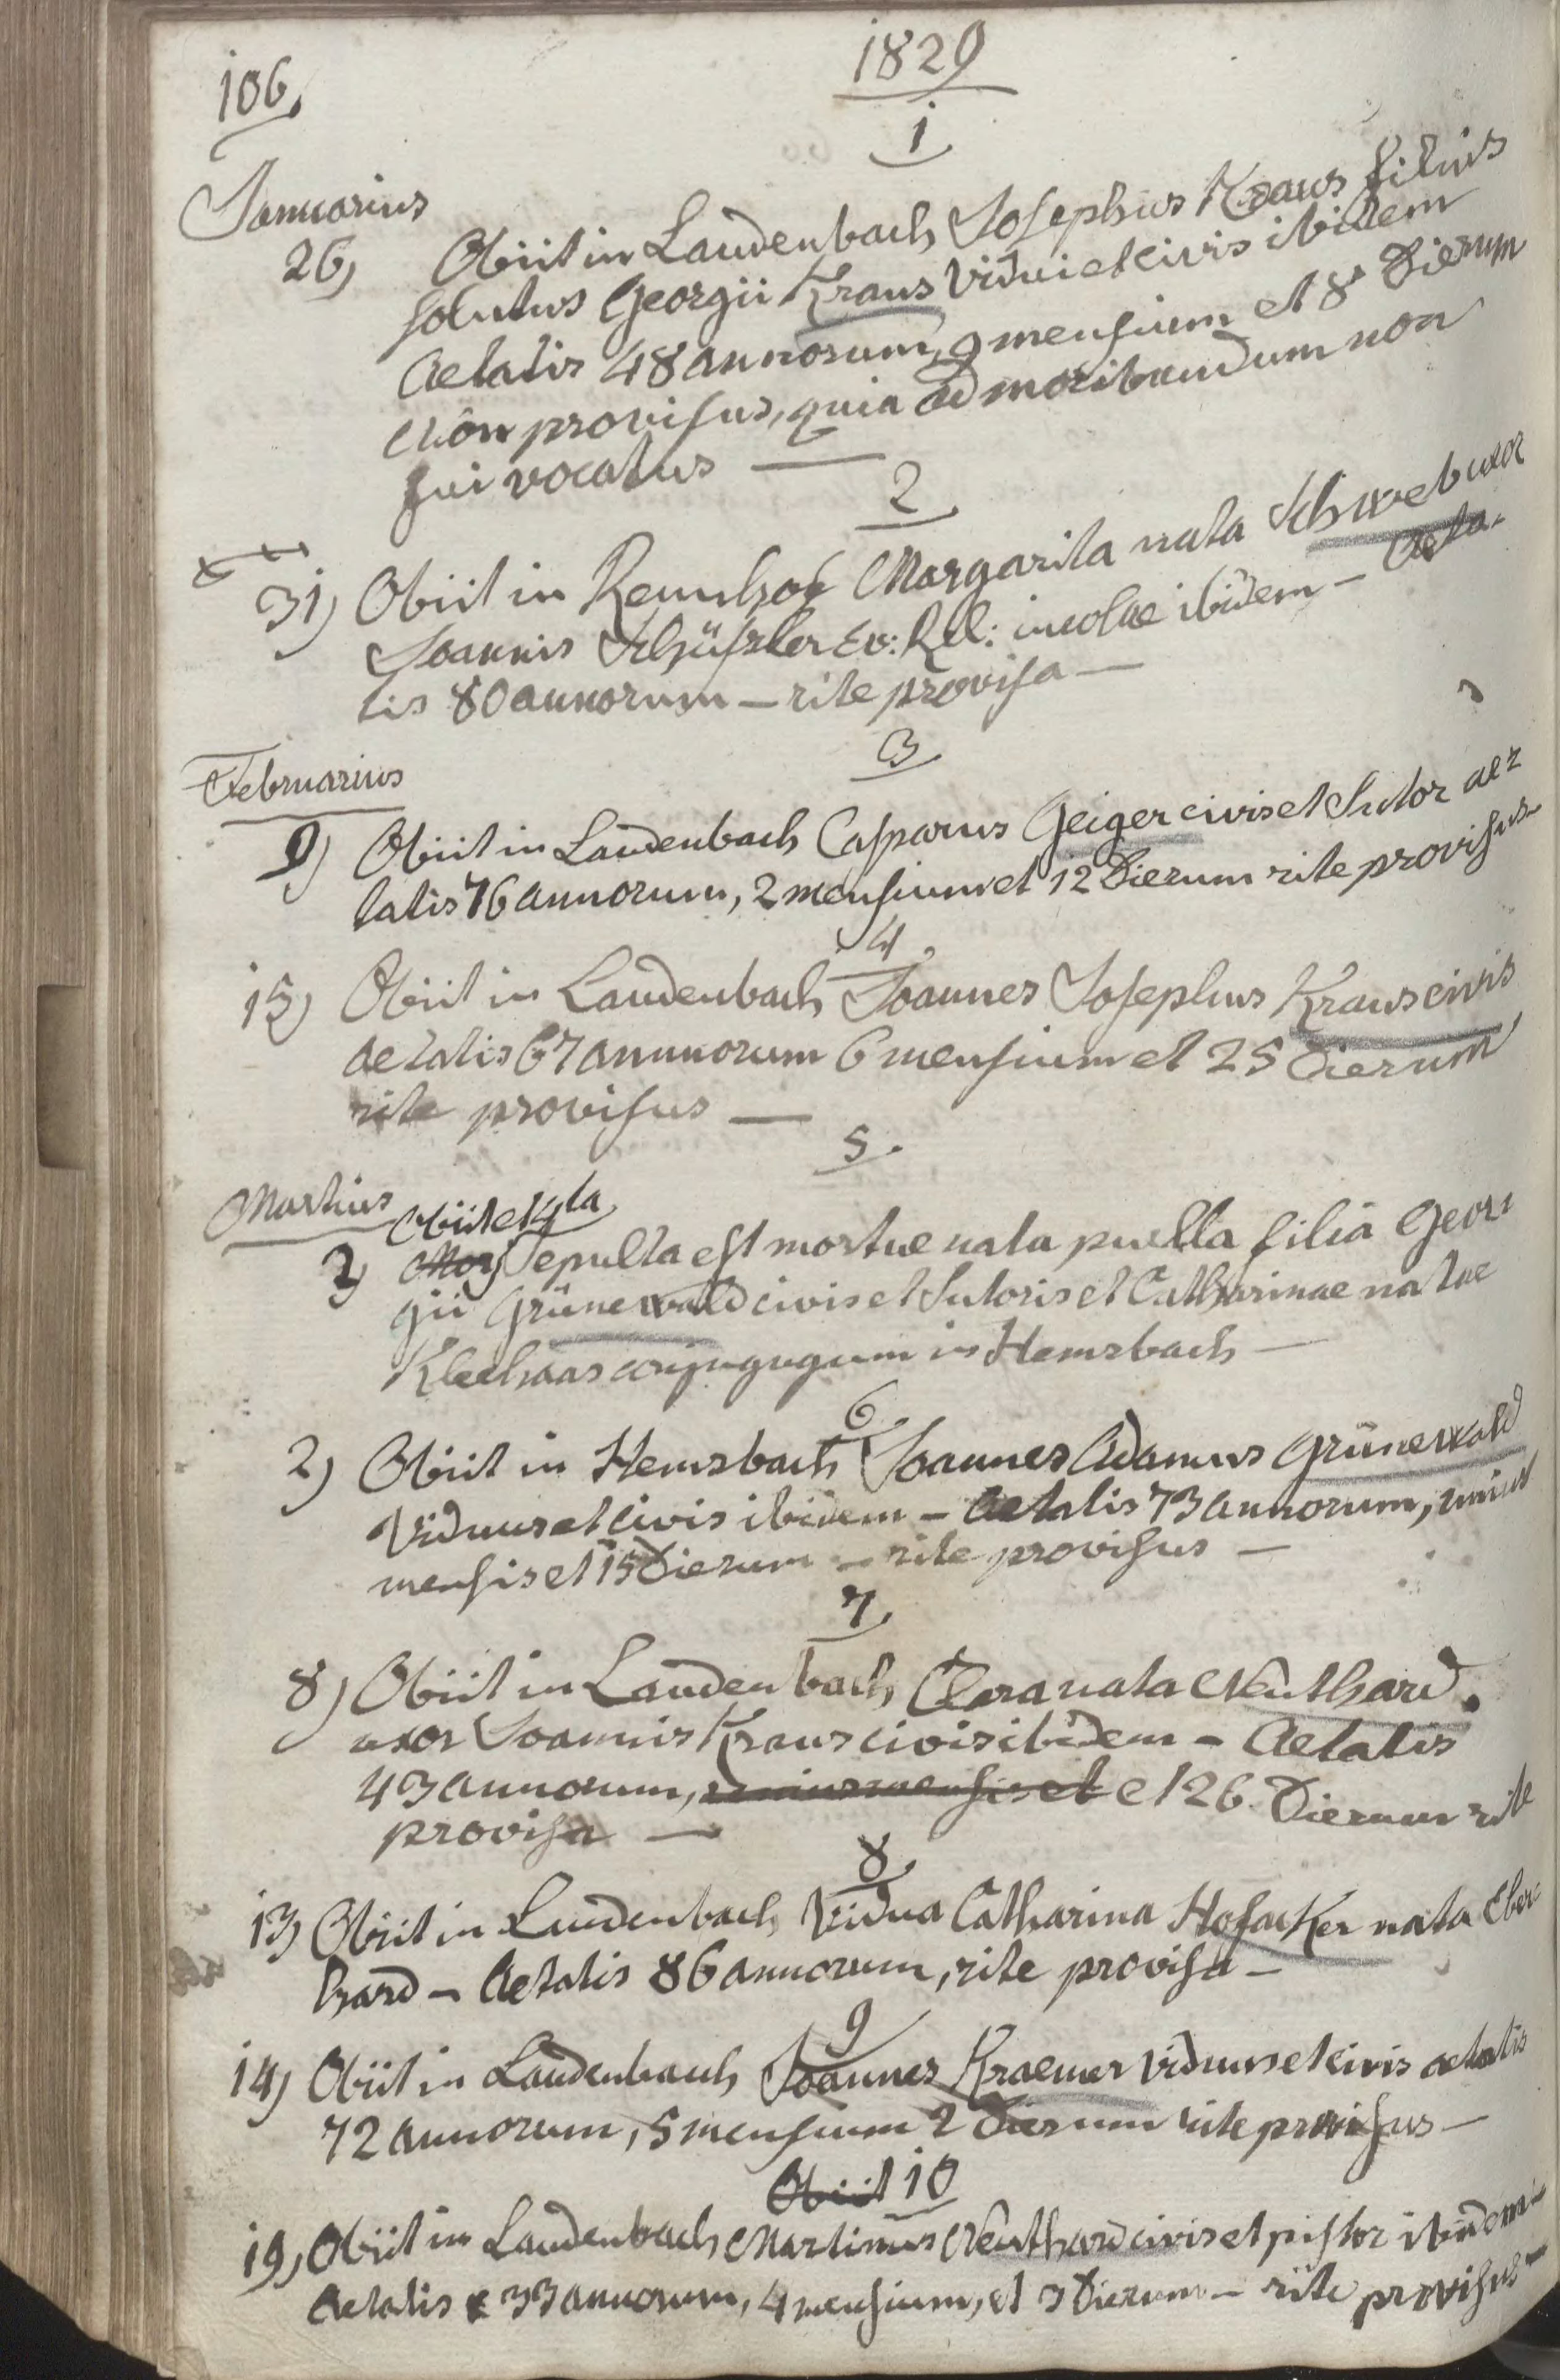 106.
1829
1
Januarius
26) Obiit in Laudenbach Josephus Kraus filius
solutus Georgii Kraus vidui et civis ibidem
Aetatis 48 annorum, 9 mensium et 8 Dierum
non provisus, quia ad moribundum non
fui vocatus —
2
31) Obiit in Rennhof Margarita nata Schweb uxor
Joannis Schüßler Ev: Rel: incolae ibidem — Aeta-
tis 80 annorum — rite provisa —
3
Februarius
9) Obiit in Laudenbach Casparus Geiger civis et Sutor ae-
tatis 76 annorum, 2 mensium et 12 Dierum rite provisus
4
15) Obiit in Laudenbach Joannes Josephus Kraus civis
aetatis 67 annnorum 6 mensium et 25 Dierum
rite provisus —
5.
Martius
2) Sepulta est mortue nata puella filia Geor-
gii Grünewald civis et Sutoris et Catharinae natae
Kleehaas conjugugum in Hemsbach —
6
2) Obiit in Hemsbach Joannes Adamus Grünewald
Viduus et civis ibidem — Aetatis 73 annorum, unius
mensis et 15 Dierum — rite provisus —
7
8) Obiit in Laudenbach Clara nata Neuthard
uxor Joannis Kraus civis ibidem — Aetatis
43 annorum, unius mensis et et 26 Dierum rite
provisa —
8
13) Obiit in Laudenbach Vidua Catharina Hofacker nata Eber
hard — Aetatis 86 annorum, rite provisa —
9
14) Obiit in Laudenbach Joannes Kraemer viduus et civis aetatis
72 annorum, 5 mensium 2 Dierum rite provisus —
Obiit 10
19) Obiit in Laudenbach Martinus Neuthard civis et pistor ibidem —
Aetatis 33 annorum, 4 mensium, et 3 Dierum — rite provisus —